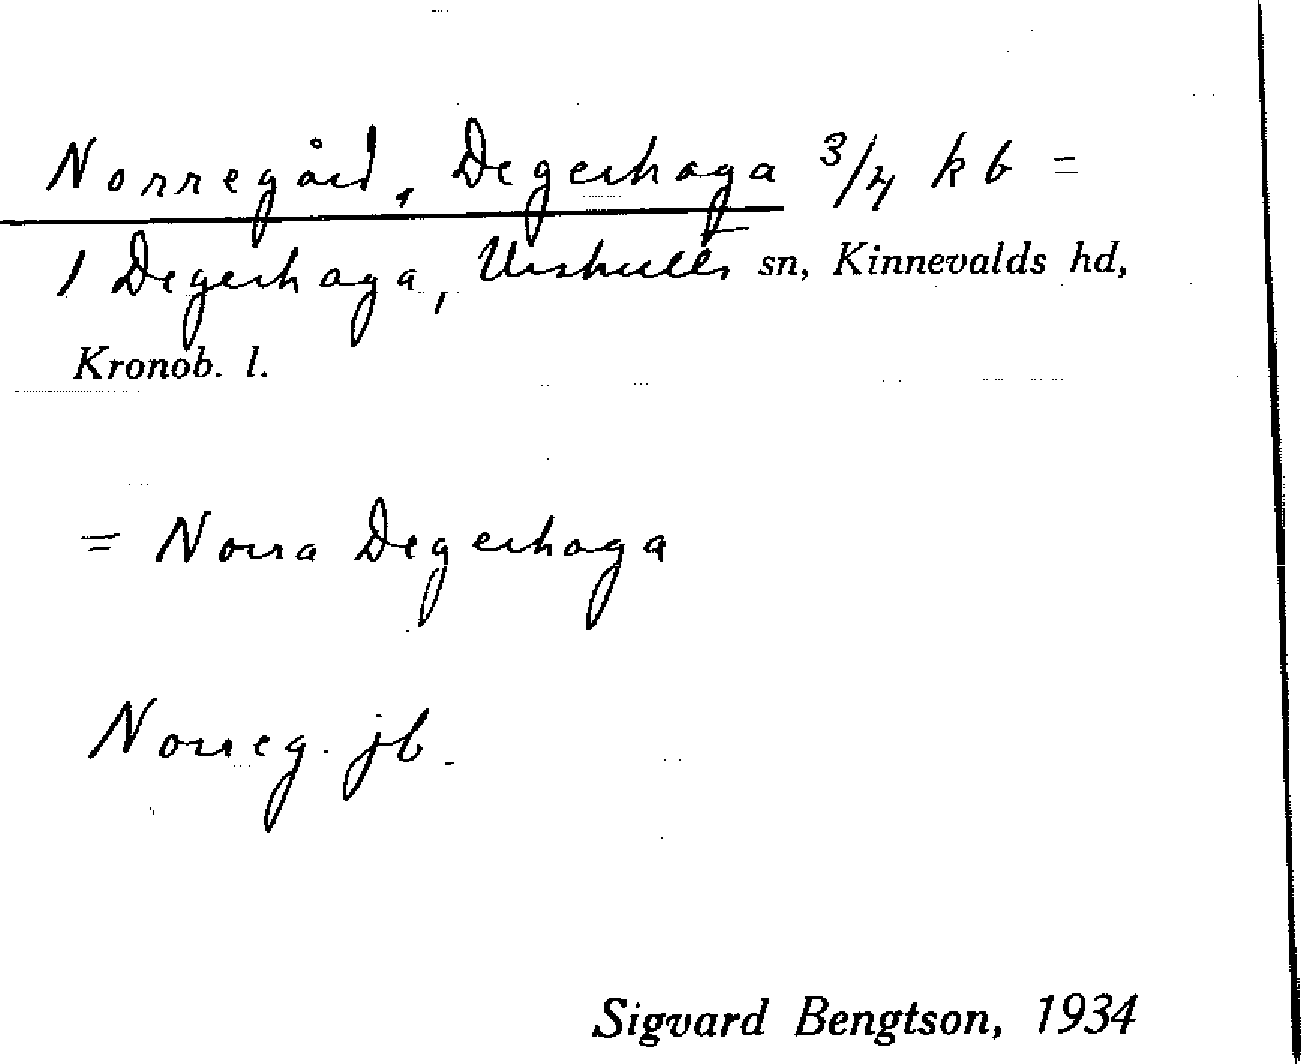 Norregård, Degerhaga 3/4 kb =
1 Degerhaga, Urshults sn, Kinnevalds hd,
Kronob. l.
= Norra Degerhaga
Norreg. jb.
Sigvard Bengtson, 1934